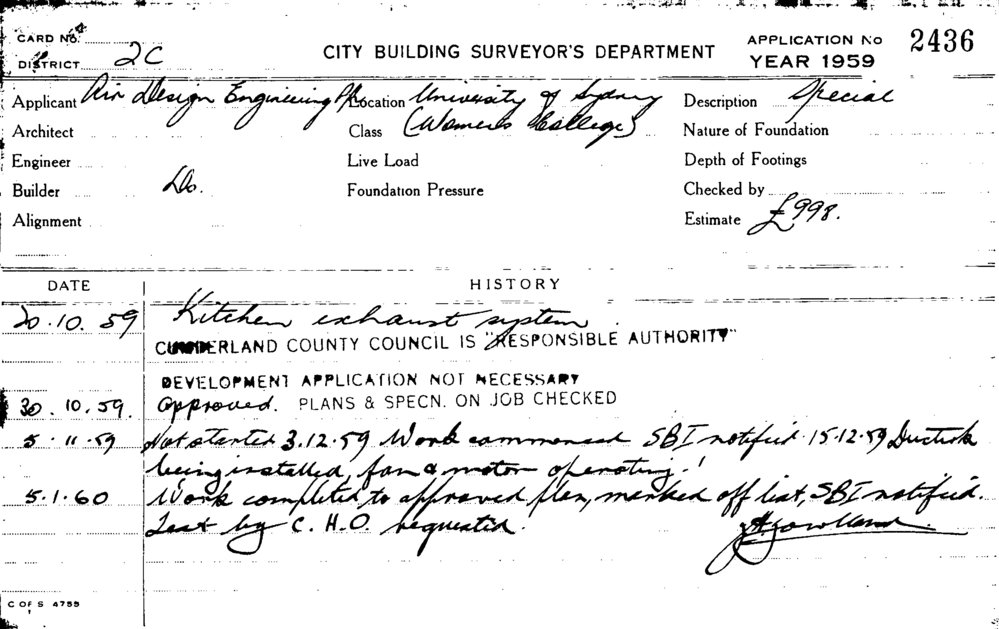 CARD No.
DISTRICT 2C
CITY BUILDING SURVEYOR'S DEPARTMENT
APPLICATION No 2436
YEAR 1959
Applicant Air Design Engineering P/L
Location University of Sydney
Description Special
Architect
Class (Women's College)
Nature of Foundation
Engineer
Live Load
Depth of Footings
Builder Do.
Foundation Pressure
Checked by
Alignment
Estimate £998.
DATE HISTORY
20.10.59 Kitchen exhaust system.
CUMBERLAND COUNTY COUNCIL IS "RESPONSIBLE AUTHORITY"
DEVELOPMENT APPLICATION NOT NECESSARY
30.10.59. Approved. PLANS & SPECN. ON JOB CHECKED
5.11.59 Not started 3.12.59 Work commenced SBI notified 15.12.59 Ductwork
being installed, fan & motor operating.
5.1.60 Work completed to approved plan, marked off list, SBI notified.
Test by C.H.O. requested.
C OF S 4759